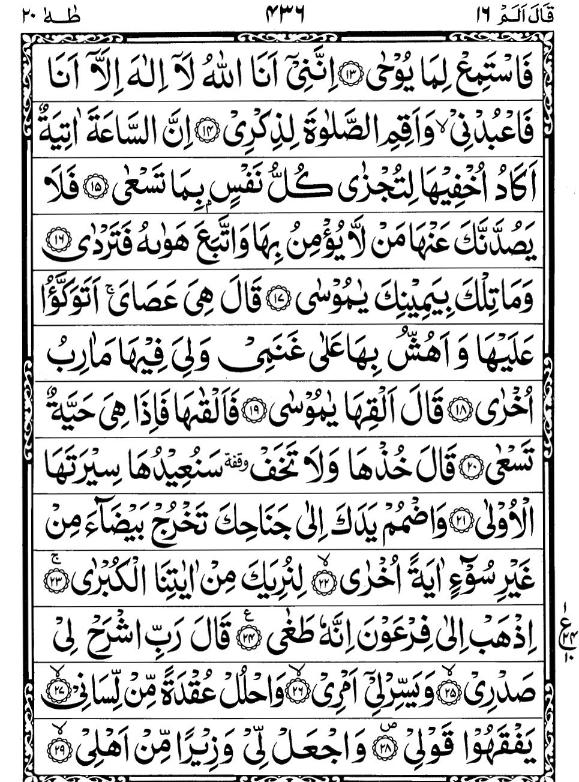 قَالَ اَلَمْ ١٦ ٤٣٦ طٰهٰ ٢٠
فَاسْتَمِعْ لِمَا يُوْحٰى ﴿١٣﴾ اِنَّنِىْۤ اَنَا اللّٰهُ لَاۤ اِلٰهَ اِلَّاۤ اَنَا
فَاعْبُدْنِىْ ۙ وَاَقِمِ الصَّلٰوةَ لِذِكْرِىْ ﴿١٤﴾ اِنَّ السَّاعَةَ اٰتِيَةٌ
اَكَادُ اُخْفِيْهَا لِتُجْزٰى كُلُّ نَفْسٍۢ بِمَا تَسْعٰى ﴿١٥﴾ فَلَا
يَصُدَّنَّكَ عَنْهَا مَنْ لَّا يُؤْمِنُ بِهَا وَاتَّبَعَ هَوٰىهُ فَتَرْدٰى ﴿١٦﴾
وَمَا تِلْكَ بِيَمِيْنِكَ يٰمُوْسٰى ﴿١٧﴾ قَالَ هِىَ عَصَاىَ ۚ اَتَوَكَّؤُا
عَلَيْهَا وَ اَهُشُّ بِهَا عَلٰى غَنَمِىْ وَلِىَ فِيْهَا مَاٰرِبُ
اُخْرٰى ﴿١٨﴾ قَالَ اَلْقِهَا يٰمُوْسٰى ﴿١٩﴾ فَاَلْقٰىهَا فَاِذَا هِىَ حَيَّةٌ
تَسْعٰى ﴿٢٠﴾ قَالَ خُذْهَا وَلَا تَخَفْ وقفة سَنُعِيْدُهَا سِيْرَتَهَا
الْاُوْلٰى ﴿٢١﴾ وَاضْمُمْ يَدَكَ اِلٰى جَنَاحِكَ تَخْرُجْ بَيْضَآءَ مِنْ
غَيْرِ سُوْٓءٍ اٰيَةً اُخْرٰى ﴿٢٢﴾ ۙ لِنُرِيَكَ مِنْ اٰيٰتِنَا الْكُبْرٰى ﴿٢٣﴾ ۚ
اِذْهَبْ اِلٰى فِرْعَوْنَ اِنَّهٗ طَغٰى ﴿٢٤﴾ ع قَالَ رَبِّ اشْرَحْ لِىْ
١ ع ٢٤ ١٠
صَدْرِىْ ﴿٢٥﴾ ۙ وَيَسِّرْ لِىْۤ اَمْرِىْ ﴿٢٦﴾ ۙ وَاحْلُلْ عُقْدَةً مِّنْ لِّسَانِىْ ﴿٢٧﴾ ۙ
يَفْقَهُوْا قَوْلِىْ ﴿٢٨﴾ ص وَاجْعَلْ لِّىْ وَزِيْرًا مِّنْ اَهْلِىْ ﴿٢٩﴾ ۙ